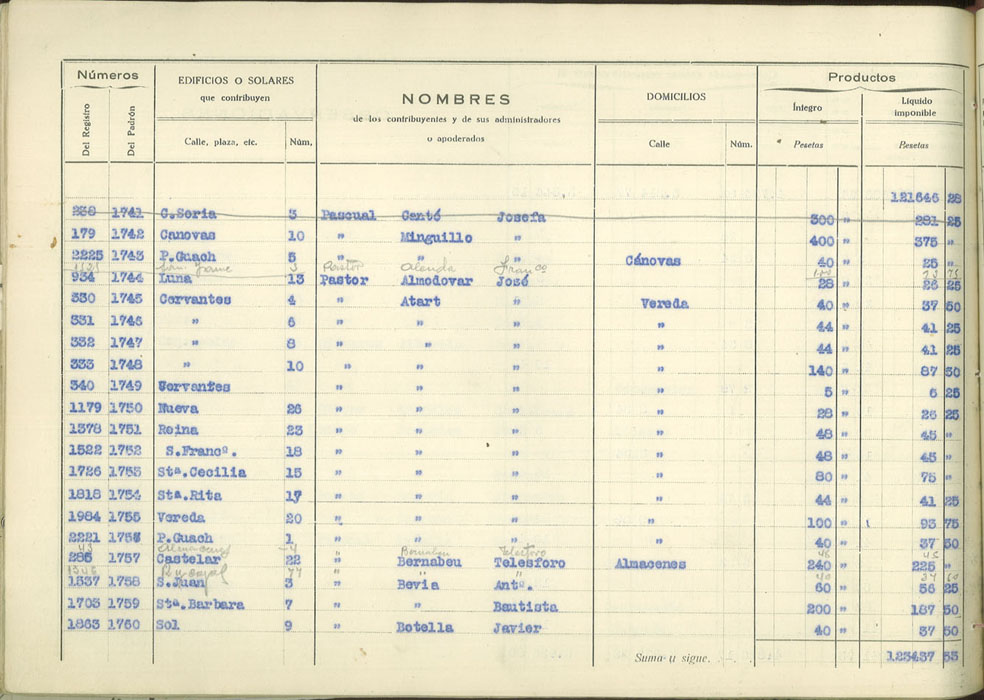 Números EDIFICIOS O SOLARES que contribuyen NOMBRES de los contribuyentes y de sus administradores o apoderados DOMICILIOS Productos
Del Registro Del Padrón Calle, plaza, etc. Núm. Calle Núm. Íntegro Pesetas Líquido imponible Pesetas
121646 28
238 1741 C.Soria 3 Pascual Cantó Josefa 300 " 281 25
179 1742 Canovas 10 " Minguillo " 400 " 375 "
2225 1743 P.Guach 5 " " " Cánovas 40 " 25 "
Jaime 3 Pastor Alenda Franco
934 1744 Luna 13 Pastor Almodovar José 28 " 26 25
330 1745 Cervantes 4 " Atart " Vereda 40 " 37 50
331 1746 " 6 " " " " 44 " 41 25
332 1747 " 8 " " " " 44 " 41 25
333 1748 " 10 " " " " 140 " 87 50
340 1749 Cervantes " " " " 5 " 6 25
1179 1750 Nueva 26 " " " " 28 " 26 25
1378 1751 Reina 23 " " " " 48 " 45 "
1522 1752 S.Francº. 18 " " " " 48 " 45 "
1726 1753 Stª.Cecilia 15 " " " " 80 " 75 "
1818 1754 Stª.Rita 17 " " " " 44 " 41 25
1984 1755 Vereda 20 " " " " 100 " 93 75
2221 1756 P.Guach 1 " " " 40 " 37 50
43 Almacenes 4 " Bernabeu Telesforo 48 45
285 1757 Castelar 22 " Bernabeu Telesforo Almacenes 240 " 225 "
77 "
1337 1758 S.Juan 3 " Bevia Antº. 60 " 56 25
1703 1759 Stª.Barbara 7 " " Bautista 200 " 187 50
1863 1760 Sol 9 " Botella Javier 40 " 37 50
Suma y sigue. . . 123437 53